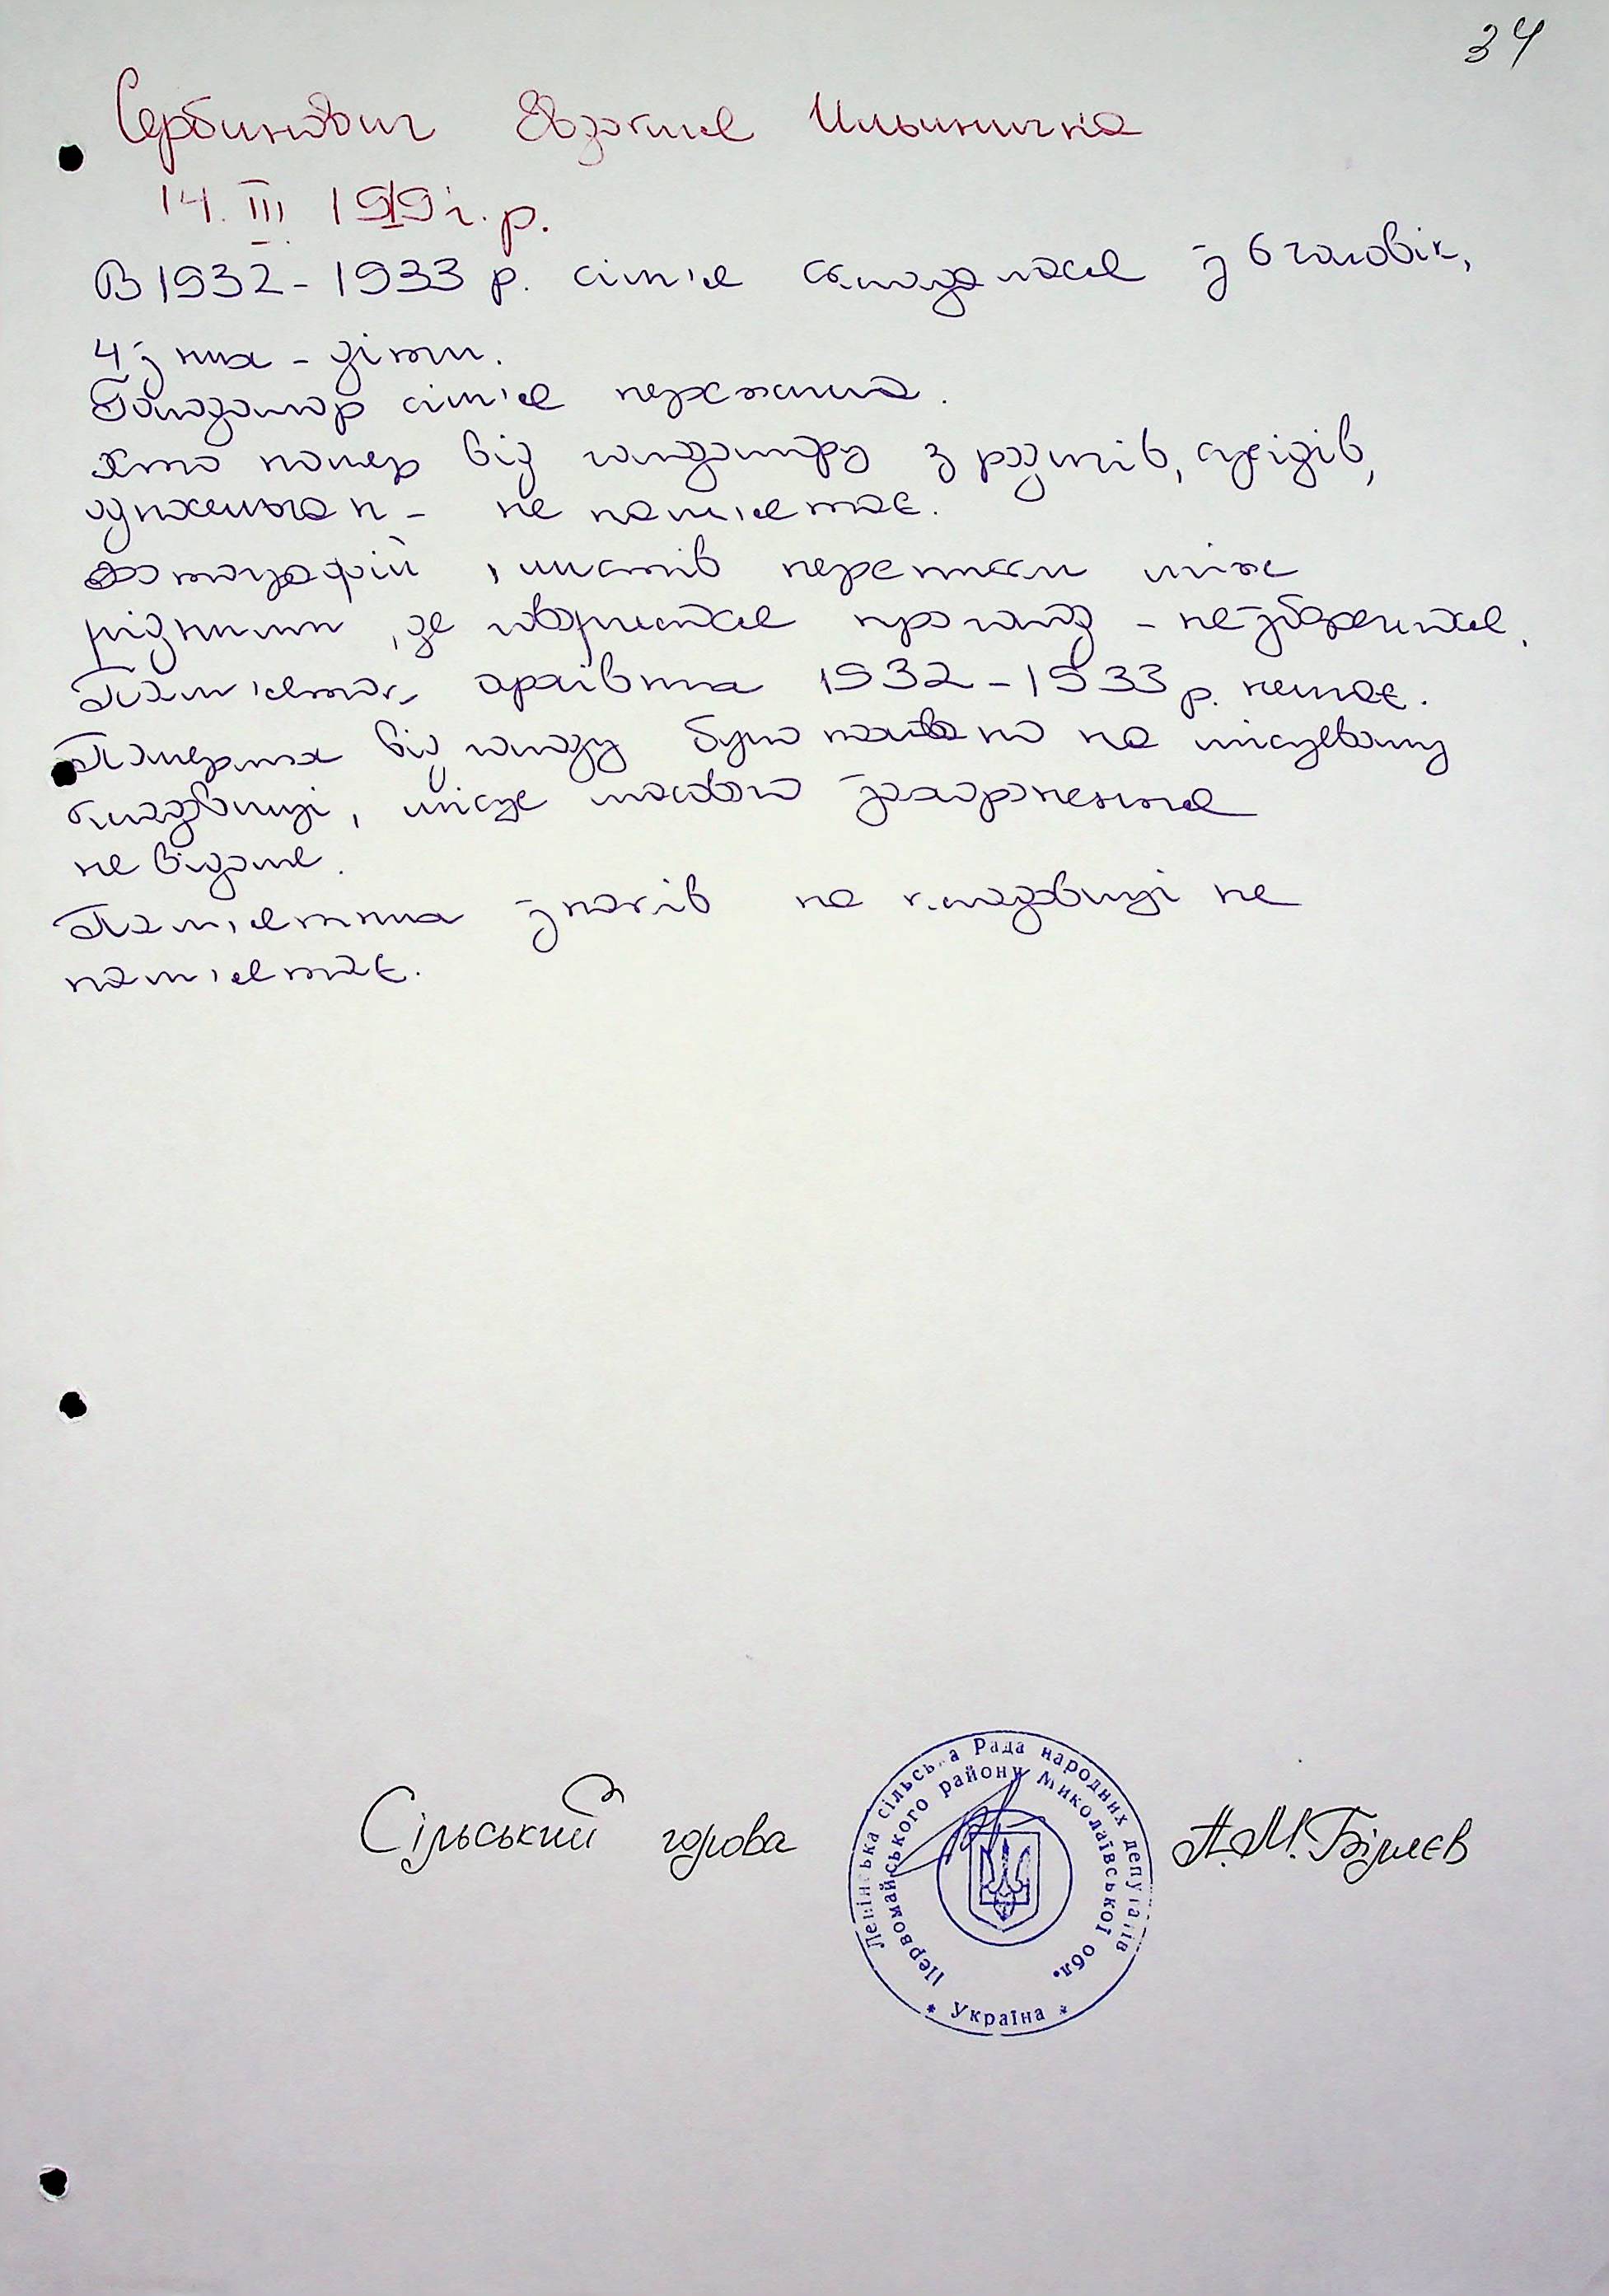 34
Сербинович Євдокія Ильинична
14. III 1919 г. р.
В 1932-1933 р. сім'я складалася з 6 чоловік,
4 з них - діти.
Голодомор сім'я пережила.
Хто помер від голодомору з родичів, сусідів,
односельчан - не пам'ятає.
Фотографій, листів переписки між
рідними, де говориться про голод - не збереглися.
Пам'яток архівних 1932-1933 р. немає.
Померлих від голоду було поховано на місцевому
кладовищі, місце масового захоронення
не відоме.
Пам'ятних знаків на кладовищі не
пам'ятає.
Сільський голова А.М. Біляєв
Ленінська сільська Рада народних депутатів
Первомайського району Миколаївської обл.
* Україна *